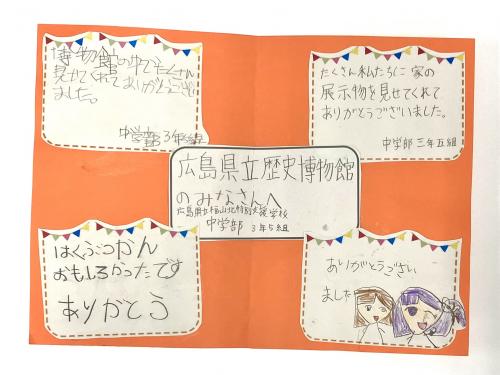 博物館の中でたくさん
見せてくれてありがとうござい
ました。
中学部 3年5組
たくさん私たちに 家の
展示物を見せてくれて
ありがとうございました。
中学部 三年五組
広島県立歴史博物館
のみなさんへ
広島県立福山北特別支援学校
中学部 3年5組
はくぶつかん
おもしろかったです
ありがとう
ありがとうござい
ました